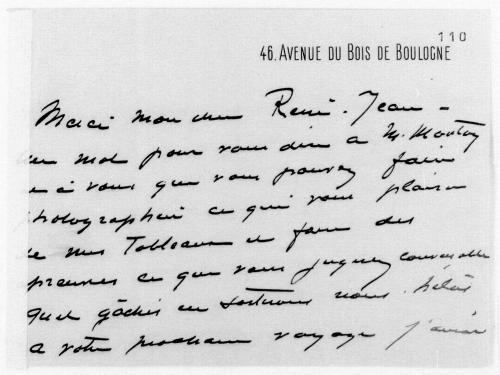 110
46. AVENUE DU BOIS DE BOULOGNE
Merci mon cher René-Jean –
un mot pour vous dire à M.
et à vous que vous pouvez faire
photographier ce qui vous plaira
de mes Tableaux et faire des
épreuves ce que vous jugerez convenable
quel gâchis en nous. hélas
a votre prochain voyage j'aurai